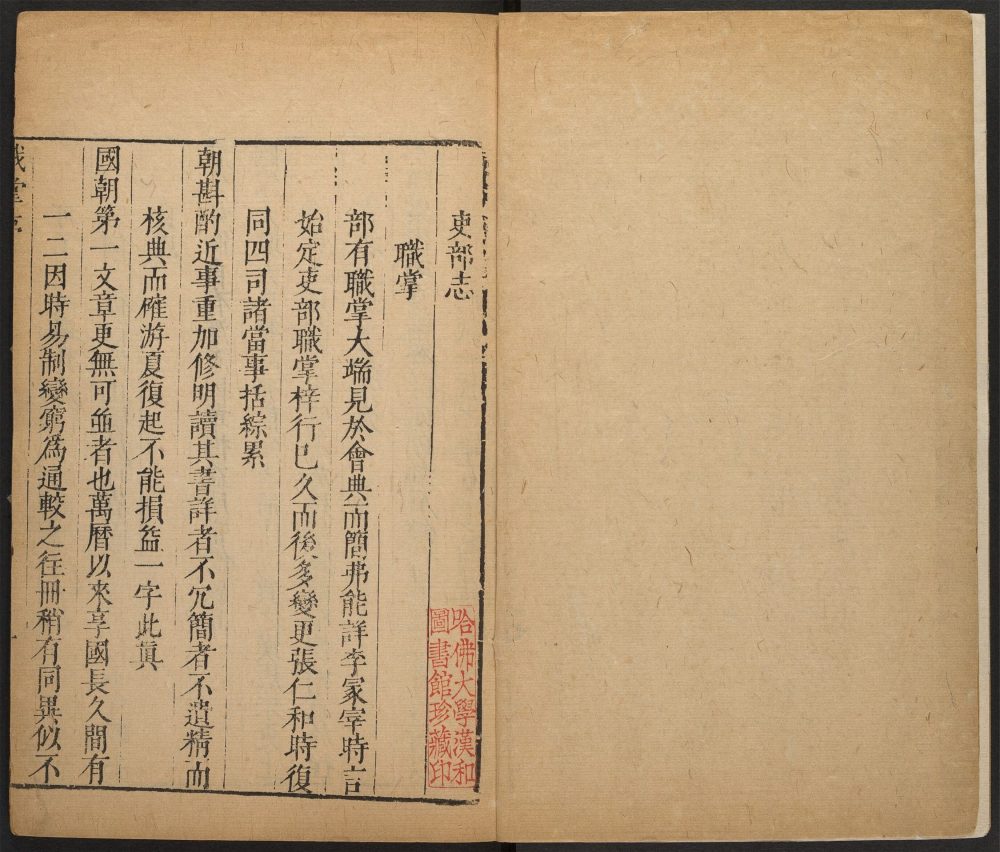 吏部志
職掌
部有職掌大端見於會典而簡弗能詳李冢宰時言
始定吏部職掌梓行已久而後多變更張仁和時復
同四司諸當事括綜累
朝斟酌近事重加修明讀其書詳者不冗簡者不遺精而
核典而確游夏復起不能損益一字此眞
國朝第一文章更無可並者也萬曆以來享國長久間有
一二因時易制變窮爲通較之往冊稍有同異似不
職掌
哈佛大學漢和
圖書館珍藏印